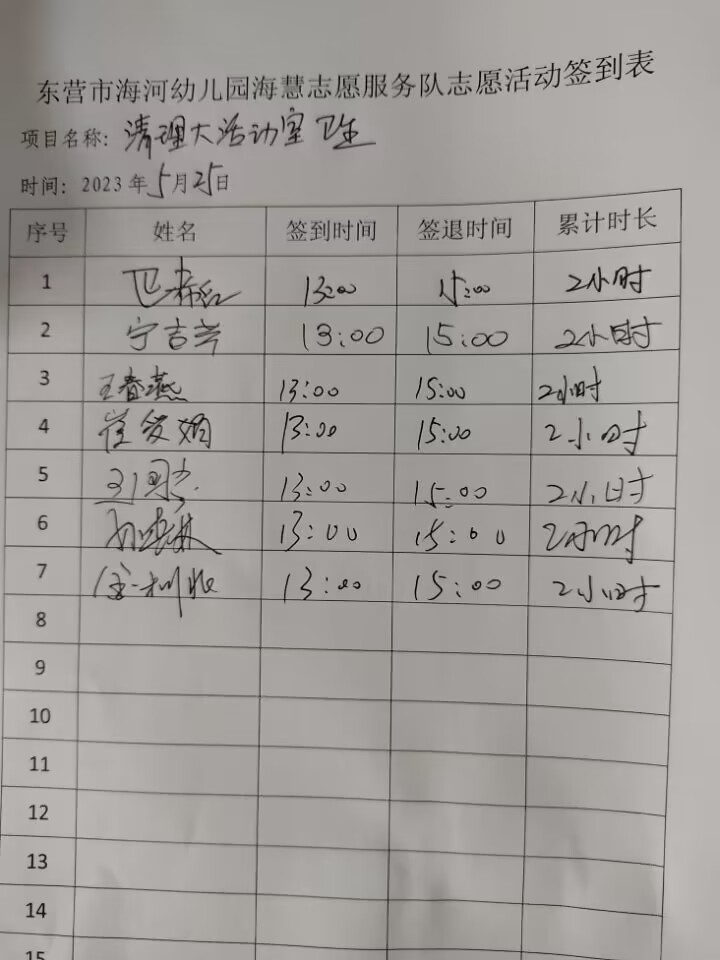 东营市海河幼儿园海慧志愿服务队志愿活动签到表
项目名称：清理大活动室卫生
时间：2023年5月25日
序号 姓名 签到时间 签退时间 累计时长
1 13:00 15:00 2小时
2 宁吉芳 13:00 15:00 2小时
3 王春燕 13:00 15:00 2小时
4 崔爱娟 13:00 15:00 2小时
5 13:00 15:00 2小时
6 13:00 15:00 2小时
7 13:00 15:00 2小时
8
9
10
11
12
13
14
15